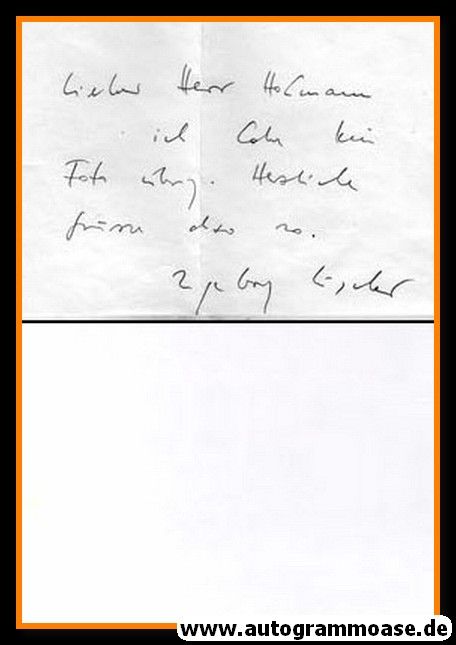 Lieber Herr Hofmann
ich habe kein
Foto übrig. Herzliche
Grüsse also so.
Ingeborg
www.autogrammoase.de